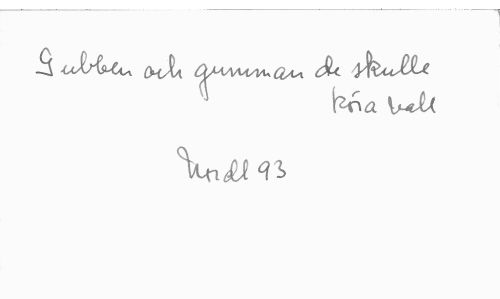 Gubben och gumman de skulle
köra vall
Nordl 93